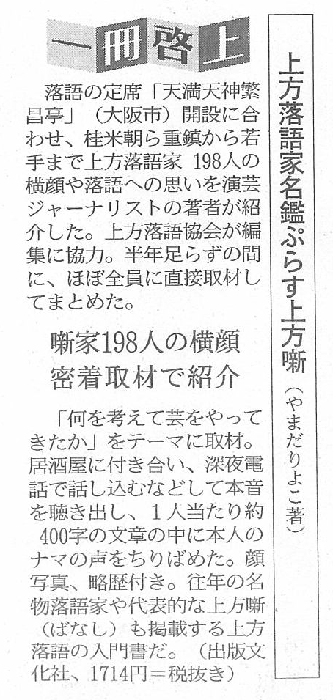 一冊啓上
上方落語家名鑑ぷらす上方噺(やまだりよこ著)
落語の定席「天満天神繁
昌亭」(大阪市)開設に合
わせ、桂米朝ら重鎮から若
手まで上方落語家198人の
横顔や落語への思いを演芸
ジャーナリストの著者が紹
介した。上方落語協会が編
集に協力。半年足らずの間
に、ほぼ全員に直接取材し
てまとめた。
噺家198人の横顔
密着取材で紹介
「何を考えて芸をやって
きたか」をテーマに取材。
居酒屋に付き合い、深夜電
話で話し込むなどして本音
を聴き出し、1人当たり約
400字の文章の中に本人の
ナマの声をちりばめた。顔
写真、略歴付き。往年の名
物落語家や代表的な上方噺
(ばなし)も掲載する上方
落語の入門書だ。(出版文
化社、1714円=税抜き)